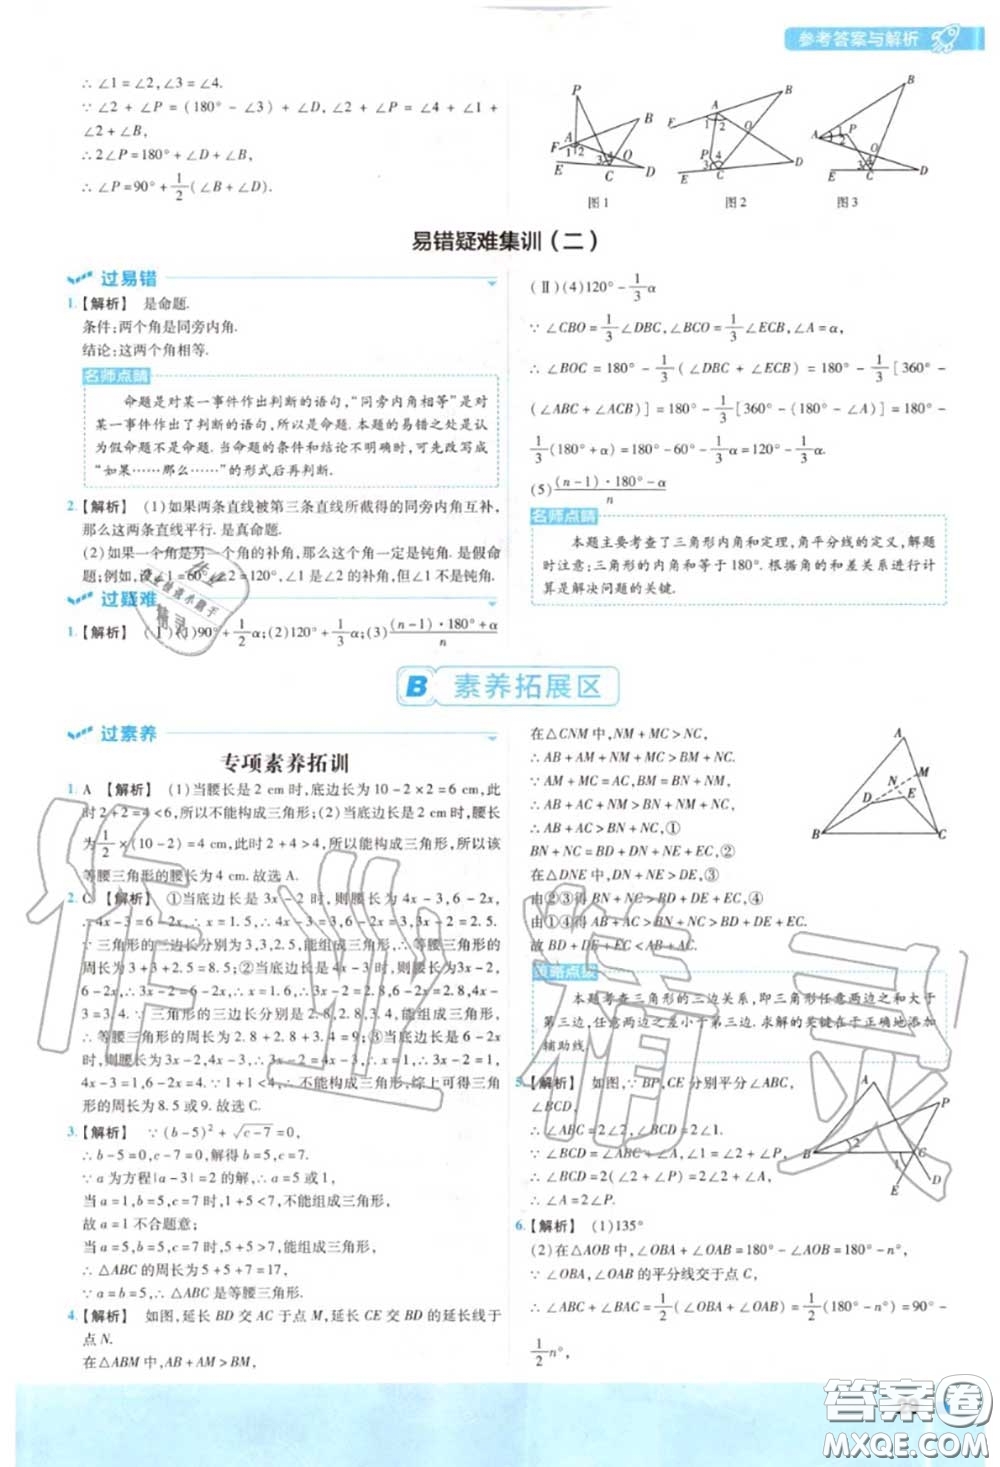 参考答案与解析
∴ ∠1=∠2,∠3=∠4.
∵ ∠2+∠P=(180°-∠3)+∠D,∠2+∠P=∠4+∠1+
∠2+∠B,
∴ 2∠P=180°+∠D+∠B,
∴ ∠P=90°+1/2(∠B+∠D).
图1 图2 图3
易错疑难集训(二)
过易错
1.【解析】 是命题.
条件:两个角是同旁内角.
结论:这两个角相等.
名师点睛
命题是对某一事件作出判断的语句,“同旁内角相等”是对
某一事件作出了判断的语句,所以是命题.本题的易错之处是认
为假命题不是命题.当命题的条件和结论不明确时,可先改写成
“如果……那么……”的形式后再判断.
2.【解析】 (1)如果两条直线被第三条直线所截得的同旁内角互补,
那么这两条直线平行.是真命题.
(2)如果一个角是另一个角的补角,那么这个角一定是钝角.是假命
题;例如,设∠1=60°,∠2=120°,∠1是∠2的补角,但∠1不是钝角.
过疑难
1.【解析】 (Ⅰ)(1)90°+1/2α;(2)120°+1/3α;(3)(n-1)·180°+α/n
(Ⅱ)(4)120°-1/3α
∵ ∠CBO=1/3∠DBC,∠BCO=1/3∠ECB,∠A=α,
∴ ∠BOC=180°-1/3(∠DBC+∠ECB)=180°-1/3[360°-
(∠ABC+∠ACB)]=180°-1/3[360°-(180°-∠A)]=180°-
1/3(180°+α)=180°-60°-1/3α=120°-1/3α.
(5)(n-1)·180°-α/n
名师点睛
本题主要考查了三角形内角和定理,角平分线的定义,解题
时注意:三角形的内角和等于180°.根据角的和差关系进行计
算是解决问题的关键.
B 素养拓展区
过素养
专项素养拓训
1. A 【解析】 (1)当腰长是2 cm时,底边长为10-2×2=6 cm,此
时2+2=4<6,所以不能构成三角形;(2)当底边长是2 cm时,腰长
为1/2×(10-2)=4 cm,此时2+4>4,所以能构成三角形,所以该
等腰三角形的腰长为4 cm.故选A.
2. C 【解析】 ①当底边长是3x-2时,则腰长为4x-3,6-2x,∴
4x-3=6-2x,∴ x=1.5,∴ 4x-3=6-2x=3,3x-2=2.5.
∵ 三角形的三边长分别为3,3,2.5,能组成三角形,∴ 等腰三角形的
周长为3+3+2.5=8.5;②当底边长是4x-3时,则腰长为3x-2,
6-2x,∴ 3x-2=6-2x,∴ x=1.6,∴ 3x-2=6-2x=2.8,4x-
3=3.4.∵ 三角形的三边长分别是2.8,2.8,3.4,能组成三角形,
∴ 等腰三角形的周长为2.8+2.8+3.4=9;③当底边长是6-2x
时,则腰长为3x-2,4x-3,∴ 3x-2=4x-3,∴ x=1,∴ 3x-2=1,
4x-3=1,6-2x=4.∵ 1+1<4,∴ 不能组成三角形.综上可得三角
形的周长为8.5或9.故选C.
3.【解析】 ∵ (b-5)²+√(c-7)=0,
∴ b-5=0,c-7=0,解得b=5,c=7.
∵ a为方程|a-3|=2的解,∴ a=5或1,
当a=1,b=5,c=7时,1+5<7,不能组成三角形,
故a=1不合题意;
当a=5,b=5,c=7时,5+5>7,能组成三角形,
∴ △ABC的周长为5+5+7=17,
∵ a=b=5,∴ △ABC是等腰三角形.
4.【解析】 如图,延长BD交AC于点M,延长CE交BD的延长线于
点N.
在△ABM中,AB+AM>BM,
在△CNM中,NM+MC>NC,
∴ AB+AM+NM+MC>BM+NC.
∵ AM+MC=AC,BM=BN+NM,
∴ AB+AC>BN+NC,①
BN+NC=BD+DN+NE+EC,②
在△DNE中,DN+NE>DE,③
由②③得BN+NC>BD+DE+EC,④
由①④得AB+AC>BN+NC>BD+DE+EC.
故BD+DE+EC<AB+AC.
策略点拨
本题考查三角形的三边关系,即三角形任意两边之和大于
第三边,任意两边之差小于第三边.求解的关键在于正确地添加
辅助线.
5.【解析】 如图,∵ BP,CE分别平分∠ABC,
∠BCD,
∴ ∠ABC=2∠2,∠BCD=2∠1.
∵ ∠BCD=∠ABC+∠A,∠1=∠2+∠P,
∴ ∠BCD=2(∠2+∠P)=2∠2+∠A,
∴ ∠A=2∠P.
6.【解析】 (1)135°
(2)在△AOB中,∠OBA+∠OAB=180°-∠AOB=180°-n°,
∵ ∠OBA,∠OAB的平分线交于点C,
∴ ∠ABC+∠BAC=1/2(∠OBA+∠OAB)=1/2(180°-n°)=90°-
1/2n°,
作业精灵
答案卷
MXQE.COM